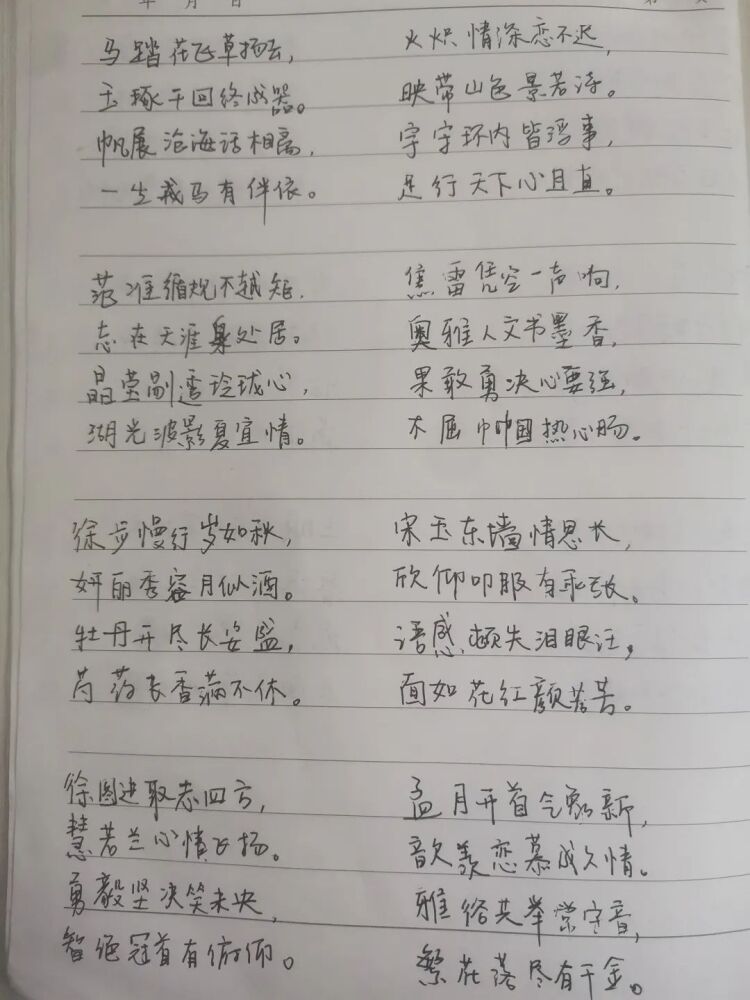 年 月 日
马踏花飞草扬云,
玉琢千回终成器。
帆展沧海话相离,
一生戎马有伴依。
火炽情深恋不迟,
映带山色景若诗。
宇宇环内皆浮事,
足行天下心且直。
范准循规不越矩,
志在天涯身处居。
晶莹剔透玲珑心,
湖光波影夏宜情。
焦雷凭空一声响,
奥雅人文书墨香,
果敢勇决心要强,
不屈巾帼热心肠。
徐步慢行岁如秋,
妍丽秀容月似酒。
牡丹开尽长姿盛,
芍药长香满不休。
宋玉东墙情思长,
欣仰叩服有乖张。
语感顿失泪眼汪,
面如花红颜若芳。
徐图进取志四方,
慧若兰心情飞扬。
勇毅坚决笑未央,
智绝冠首有俯仰。
孟月开首气象新,
歆羡恋慕成久情。
雅俗共举常守音,
繁花落尽有千金。